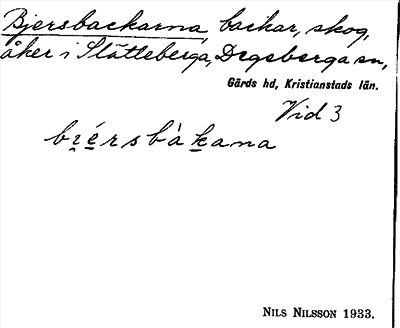 Bjersbackarna, backar, skog,
åker i Slätteberga, Degeberga sn,
Gärds hd, Kristianstads län.
Vid 3
bɪ̯é̱rsbàḵana
NILS NILSSON 1933.